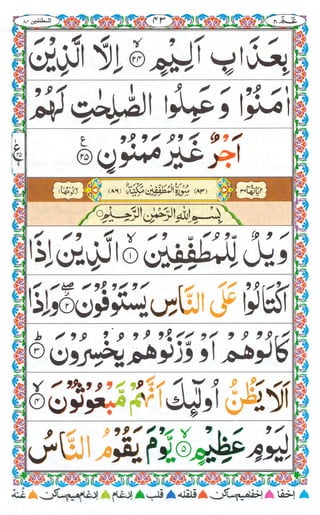 عمّ ٣٠
٤٣
المطففين ٨٣
بِعَذَابٍ اَلِيْمٍ ۙ﴿۲۴﴾ اِلَّا الَّذِيْنَ
اٰمَنُوْا وَ عَمِلُوا الصّٰلِحٰتِ لَهُمْ
اَجْرٌ غَيْرُ مَمْنُوْنٍ ﴿۲۵﴾ ع
اٰيَاتُهَا ٣٦ (٨٣) سُوْرَةُ الْمُطَفِّفِيْنَ مَكِّيَّةٌ (٨٦) رُكُوْعُهَا ١
بِسْمِ اللهِ الرَّحْمٰنِ الرَّحِيْمِ
وَيْلٌ لِّلْمُطَفِّفِيْنَ ۙ﴿۱﴾ الَّذِيْنَ اِذَا
اكْتَالُوْا عَلَى النَّاسِ يَسْتَوْفُوْنَ ۖ﴿۲﴾ وَاِذَا
كَالُوْهُمْ اَوْ وَّزَنُوْهُمْ يُخْسِرُوْنَ ﴿۳﴾
اَلَا يَظُنُّ اُولٰٓئِكَ اَنَّهُمْ مَّبْعُوْثُوْنَ ۙ﴿۴﴾
لِيَوْمٍ عَظِيْمٍ ۙ﴿۵﴾ يَّوْمَ يَقُوْمُ النَّاسُ
اخفا اخفا میم ساکن قلقله قلب ادغام ادغام میم ساکن غنه